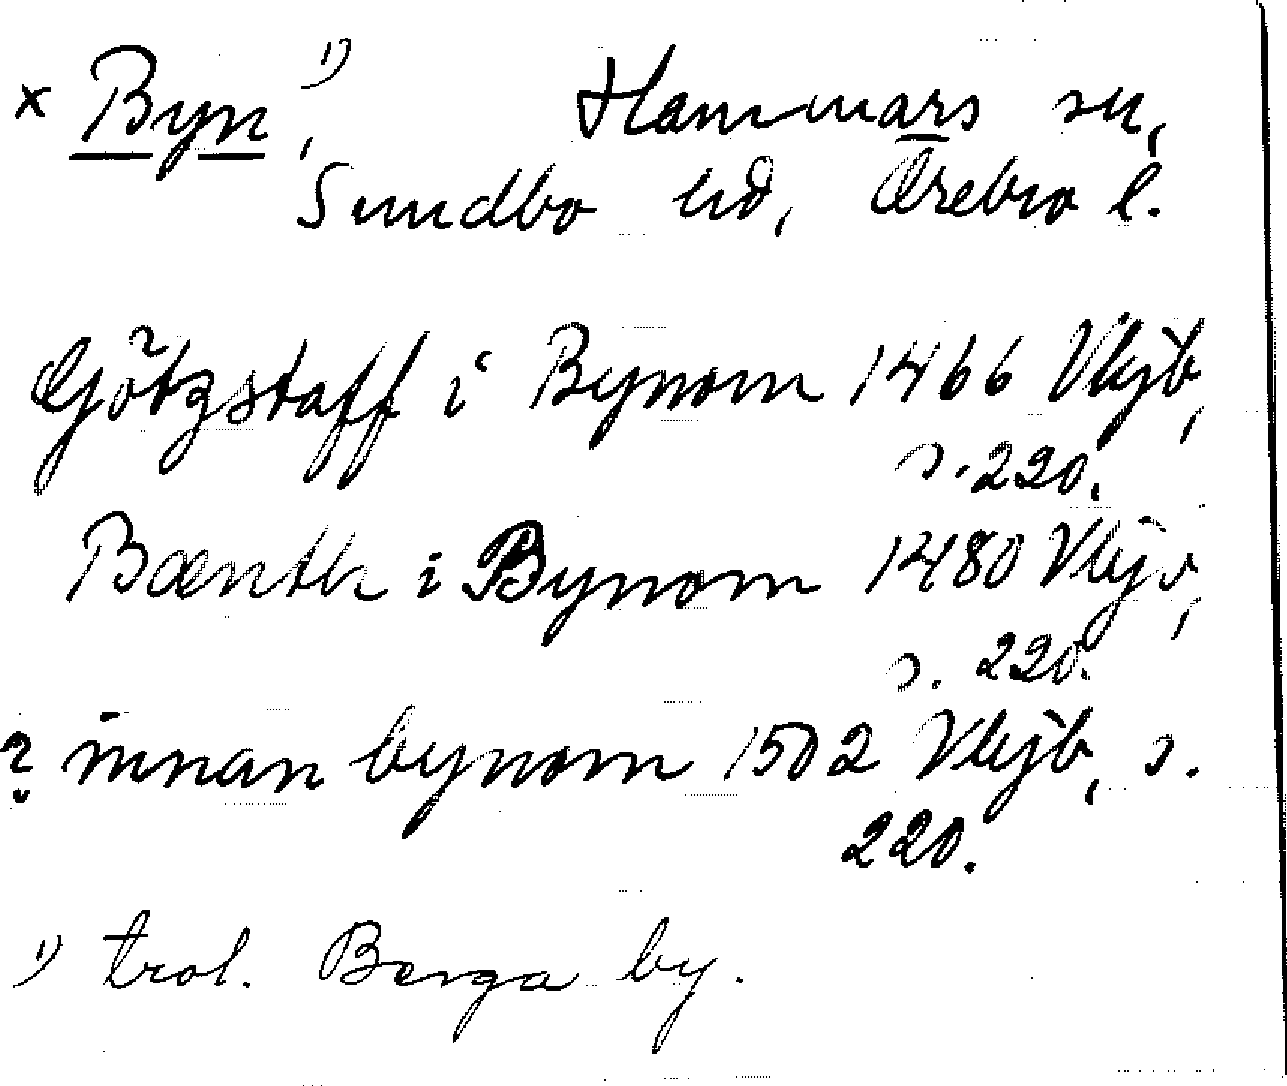 x Byn 1), Hammars sn,
Sundbo hd, Örebro l.
Götzstaff i Bynom 1466 Vkjb,
s. 220.
Bænth i Bynom 1480 Vkjb,
s. 220.
? innan bynom 1502 Vkjb, s.
220.
1) trol. Berga by.